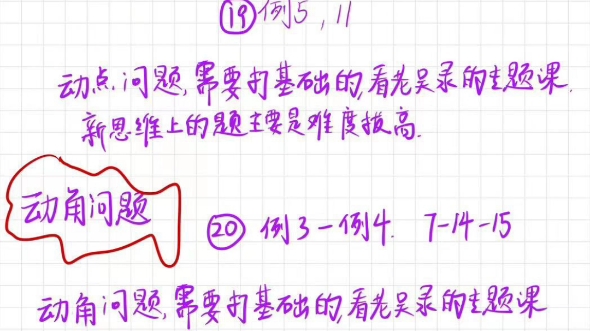 ⑲例5,11
动点问题,需要打基础的,看老吴录的专题课.
新思维上的题主要是难度拔高.
动角问题
⑳ 例3-例4. 7-14-15
动角问题,需要打基础的,看老吴录的专题课